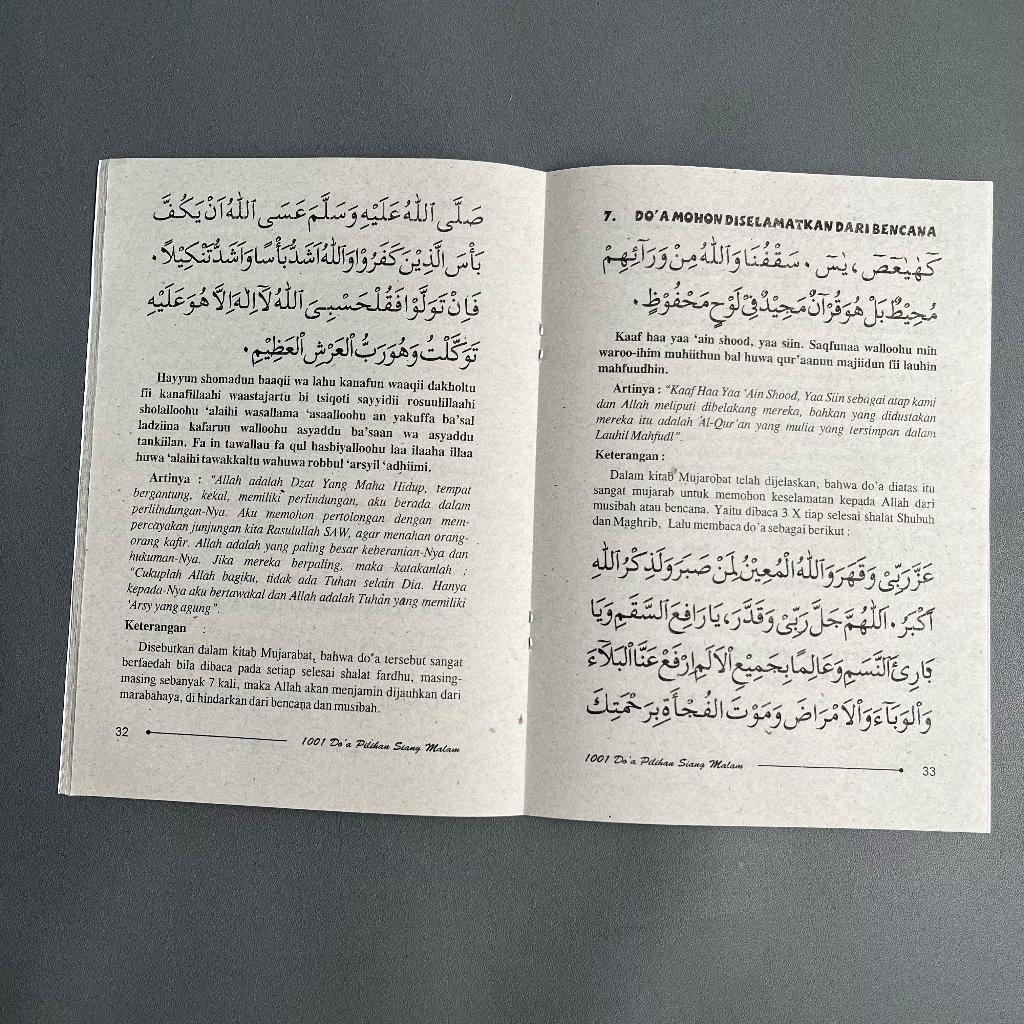 صَلَّى اللّٰهُ عَلَيْهِ وَسَلَّمَ عَسَى اللّٰهُ اَنْ يَكُفَّ
بَأْسَ الَّذِيْنَ كَفَرُوْا وَاللّٰهُ اَشَدُّ بَأْسًا وَاَشَدُّ تَنْكِيْلاً.
فَاِنْ تَوَلَّوْا فَقُلْ حَسْبِيَ اللّٰهُ لَآ اِلٰهَ اِلاَّ هُوَ عَلَيْهِ
تَوَكَّلْتُ وَهُوَ رَبُّ الْعَرْشِ الْعَظِيْمِ.
Hayyun shomadun baaqii wa lahu kanafun waaqii dakholtu
fii kanafillaahi waastajartu bi tsiqoti sayyidii rosuulillaahi
sholalloohu 'alaihi wasallama 'asaalloohu an yakuffa ba'sal
ladziina kafaruu walloohu asyaddu ba'saan wa asyaddu
tankiilan. Fa in tawallau fa qul hasbiyalloohu laa ilaaha illaa
huwa 'alaihi tawakkaltu wahuwa robbul 'arsyil 'adhiimi.
Artinya : "Allah adalah Dzat Yang Maha Hidup, tempat
bergantung, kekal, memiliki perlindungan, aku berada dalam
perlilndungan-Nya. Aku memohon pertolongan dengan mem-
percayakan junjungan kita Rasulullah SAW, agar menahan orang-
orang kafir. Allah adalah yang paling besar keberanian-Nya dan
hukuman-Nya. Jika mereka berpaling, maka katakanlah :
"Cukuplah Allah bagiku, tidak ada Tuhan selain Dia. Hanya
kepada-Nya aku bertawakal dan Allah adalah Tuhan yang memiliki
'Arsy yang agung".
Keterangan :
Disebutkan dalam kitab Mujarabat, bahwa do'a tersebut sangat
berfaedah bila dibaca pada setiap selesai shalat fardhu, masing-
masing sebanyak 7 kali, maka Allah akan menjamin dijauhkan dari
marabahaya, di hindarkan dari bencana dan musibah.
32 1001 Do'a Pilihan Siang Malam
7. DO'A MOHON DISELAMATKAN DARI BENCANA
كٓهٰيٰعٓصٓ، يٰسٓ. سَقْفُنَا وَاللّٰهُ مِنْ وَرَآئِهِمْ
مُحِيْطٌ بَلْ هُوَ قُرْآنٌ مَجِيْدٌ فِيْ لَوْحٍ مَحْفُوْظٍ.
Kaaf haa yaa 'ain shood, yaa siin. Saqfunaa walloohu min
waroo-ihim muhiithun bal huwa qur'aanun majiidun fii lauhin
mahfuudhin.
Artinya : "Kaaf Haa Yaa 'Ain Shood, Yaa Siin sebagai atap kami
dan Allah meliputi dibelakang mereka, bahkan yang didustakan
mereka itu adalah Al-Qur'an yang mulia yang tersimpan dalam
Lauhil Mahfudl".
Keterangan :
Dalam kitab Mujarobat telah dijelaskan, bahwa do'a diatas itu
sangat mujarab untuk memohon keselamatan kepada Allah dari
musibah atau bencana. Yaitu dibaca 3 X tiap selesai shalat Shubuh
dan Maghrib, Lalu membaca do'a sebagai berikut :
عَزَّ رَبِّيْ وَقَهَرَ وَاللّٰهُ الْمُعِيْنُ لِمَنْ صَبَرَ وَلَذِكْرُ اللّٰهِ
اَكْبَرُ. اَللّٰهُمَّ جَلَّ رَبِّيْ وَقَدَّرَ، يَا رَافِعَ السَّقَمِ وَيَا
بَارِئَ النَّسَمِ وَعَالِمًا بِجَمِيْعِ الْاَلَمِ اِرْفَعْ عَنَّا الْبَلَآءَ
وَالْوَبَآءَ وَالْاَمْرَاضَ وَمَوْتَ الْفُجْأَةِ بِرَحْمَتِكَ
1001 Do'a Pilihan Siang Malam 33